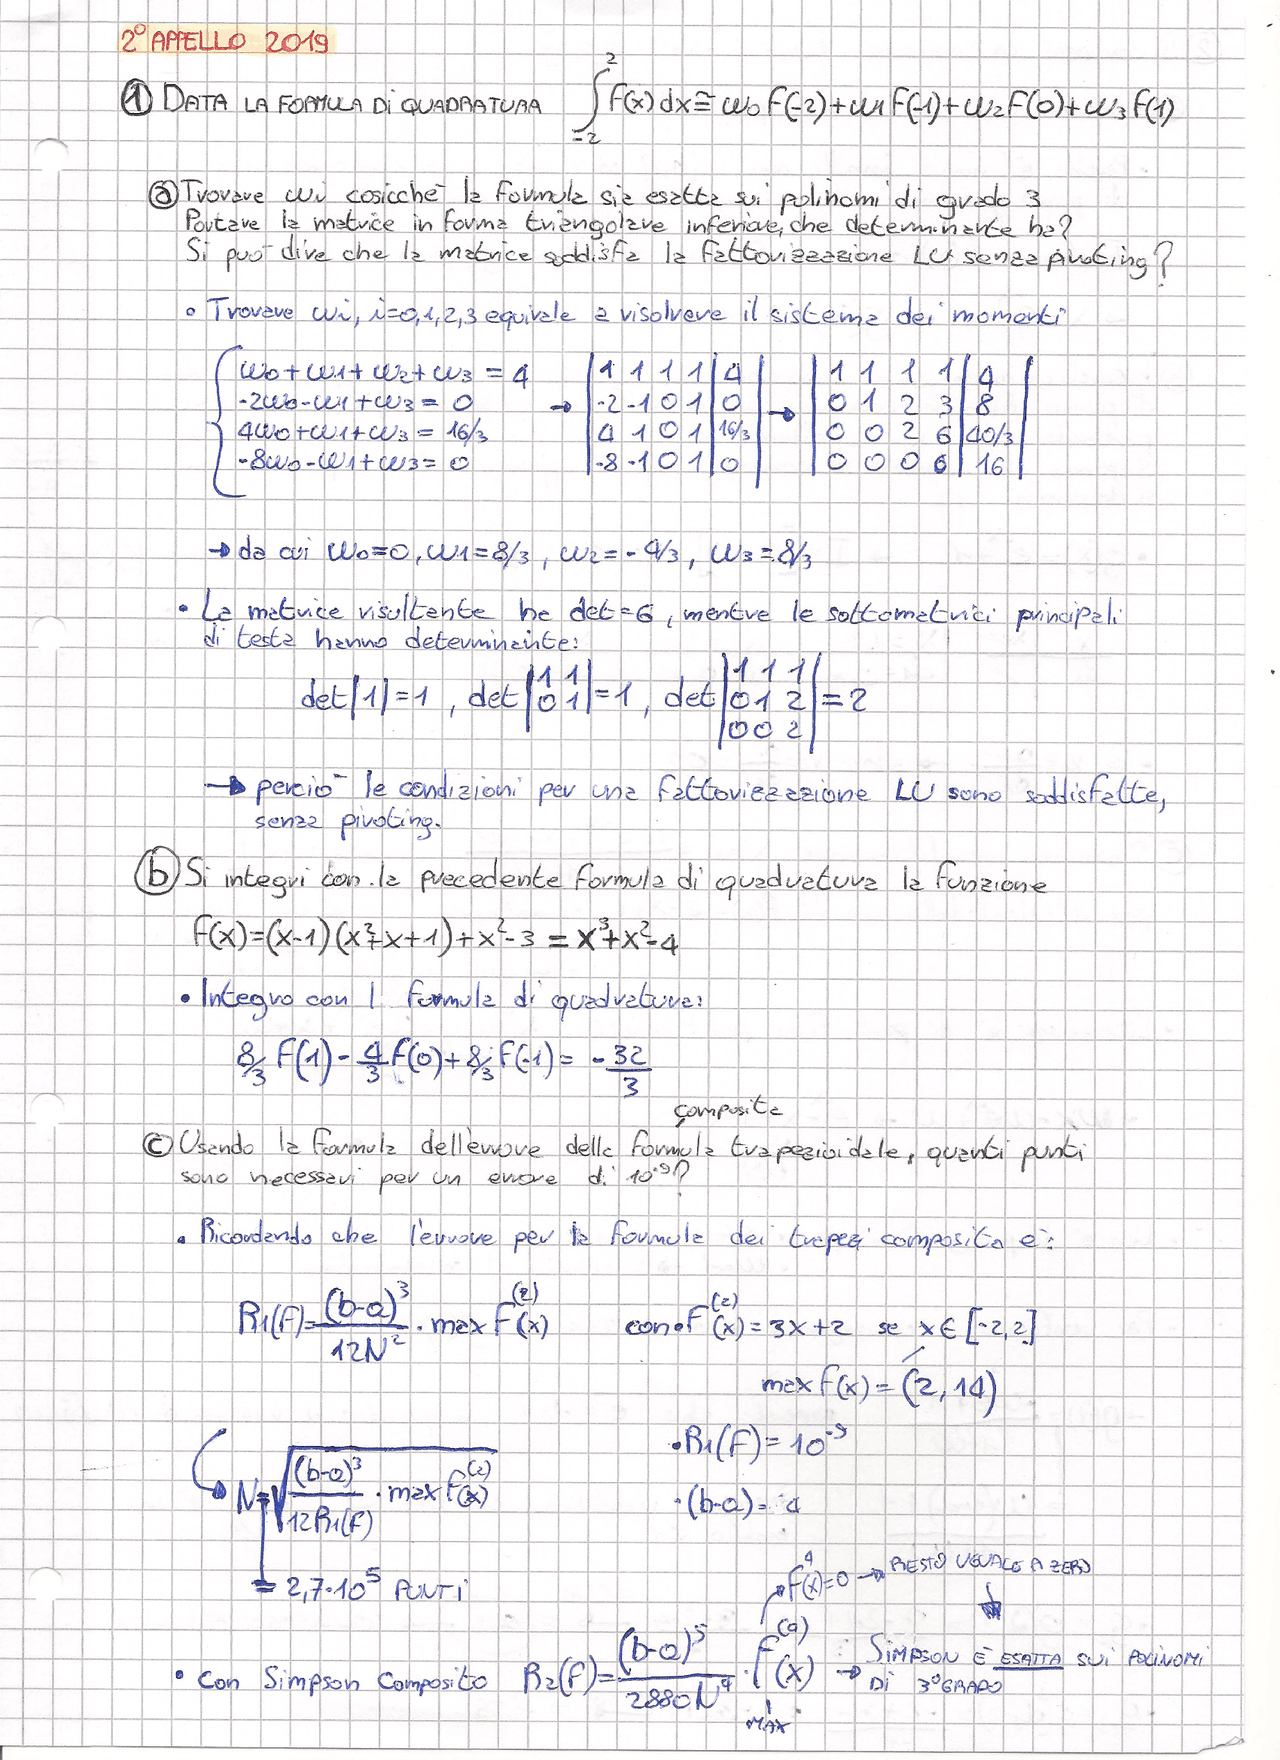 2° APPELLO 2019
① DATA LA FORMULA Di QUADRATURA ∫₋₂² f(x)dx ≅ w0 f(-2)+w1 f(-1)+w2 f(0)+w3 f(1)
ⓐ Trovare wi cosicché la formula sia esatta sui polinomi di grado 3
Portare la matrice in forma triangolare inferiore, che determinante ha?
Si può dire che la matrice soddisfa la fattorizzazione LU senza pivoting?
• Trovare wi, i=0,1,2,3 equivale a risolvere il sistema dei momenti
w0+w1+w2+w3 = 4 | 1 1 1 1 | 4 | | 1 1 1 1 | 4 |
-2w0-w1+w3 = 0 → | -2 -1 0 1 | 0 | → | 0 1 2 3 | 8 |
4w0+w1+w3 = 16/3 | 4 1 0 1 | 16/3 | | 0 0 2 6 | 40/3 |
-8w0-w1+w3 = 0 | -8 -1 0 1 | 0 | | 0 0 0 6 | 16 |
→ da cui w0=0, w1=8/3, w2=-4/3, w3=8/3
• La matrice risultante ha det=6, mentre le sottomatrici principali
di testa hanno determinante:
det|1|=1, det|1 1; 0 1|=1, det|1 1 1; 0 1 2; 0 0 2|=2
→ perciò le condizioni per una fattorizzazione LU sono soddisfatte,
senza pivoting.
ⓑ Si integri con la precedente formula di quadratura la funzione
f(x)=(x-1)(x²+x+1)+x²-3 = x³+x²-4
• Integro con l formula di quadratura:
8/3 f(1) - 4/3 f(0) + 8/3 f(-1) = -32/3
composita
ⓒ Usando la formula dell'errore della formula trapezioidale, quanti punti
sono necessari per un errore di 10⁻⁹?
• Ricordando che l'errore per la formula dei trapezi composita è:
R1(f)=(b-a)³/12N² · max f⁽²⁾(x) con • f⁽²⁾(x)=3x+2 se x∈[-2,2]
max f(x) = (2,14)
• R1(f)=10⁻⁹
N=√((b-a)³/12R1(f) · max f⁽²⁾(x))
• (b-a) = 4
= 2,7·10⁵ PUNTI
f⁴(x)=0 → RESTO UGUALE A ZERO
• Con Simpson Composito R2(f)=(b-a)⁵/2880N⁴ · f⁽⁴⁾(x) → SIMPSON È ESATTA SUI POLINOMI
DI 3° GRADO
MAX